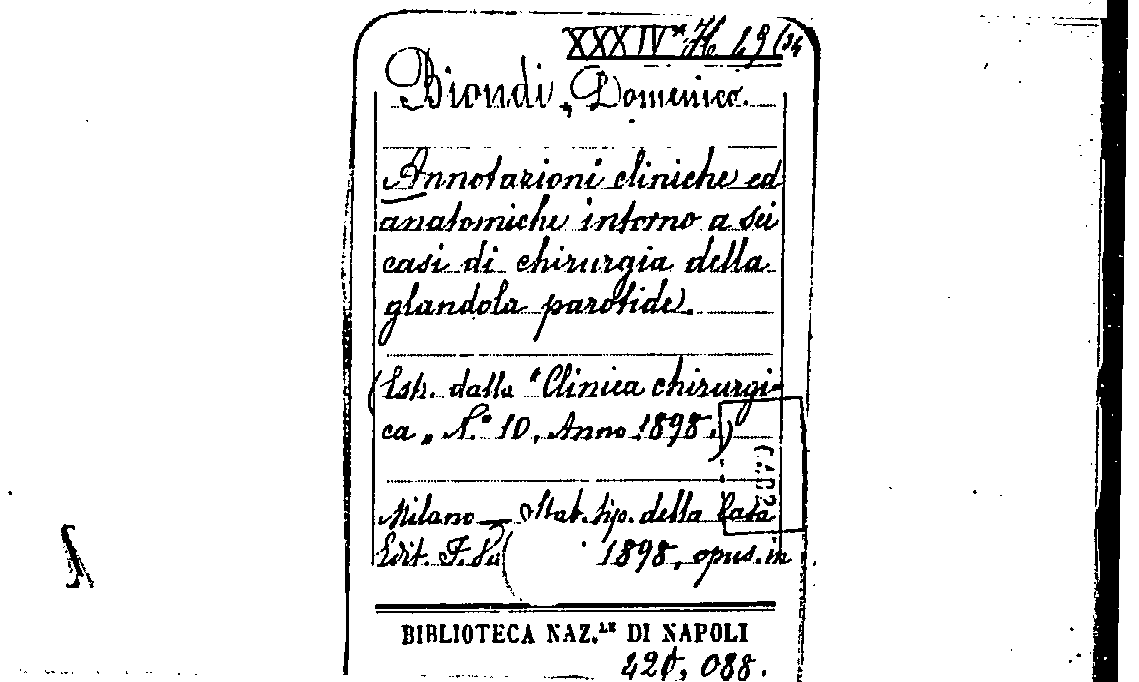 XXXIV H 49
Biondi, Domenico.
Annotazioni cliniche ed
anatomiche intorno a sei
casi di chirurgia della
glandola parotide.
(Estr. dalla "Clinica chirurgi-
ca„ N.º 10, Anno 1898.)
Milano — Stab. tip. della Casa
Edit. F. 1898, opus. in
BIBLIOTECA NAZ.LE DI NAPOLI
088.